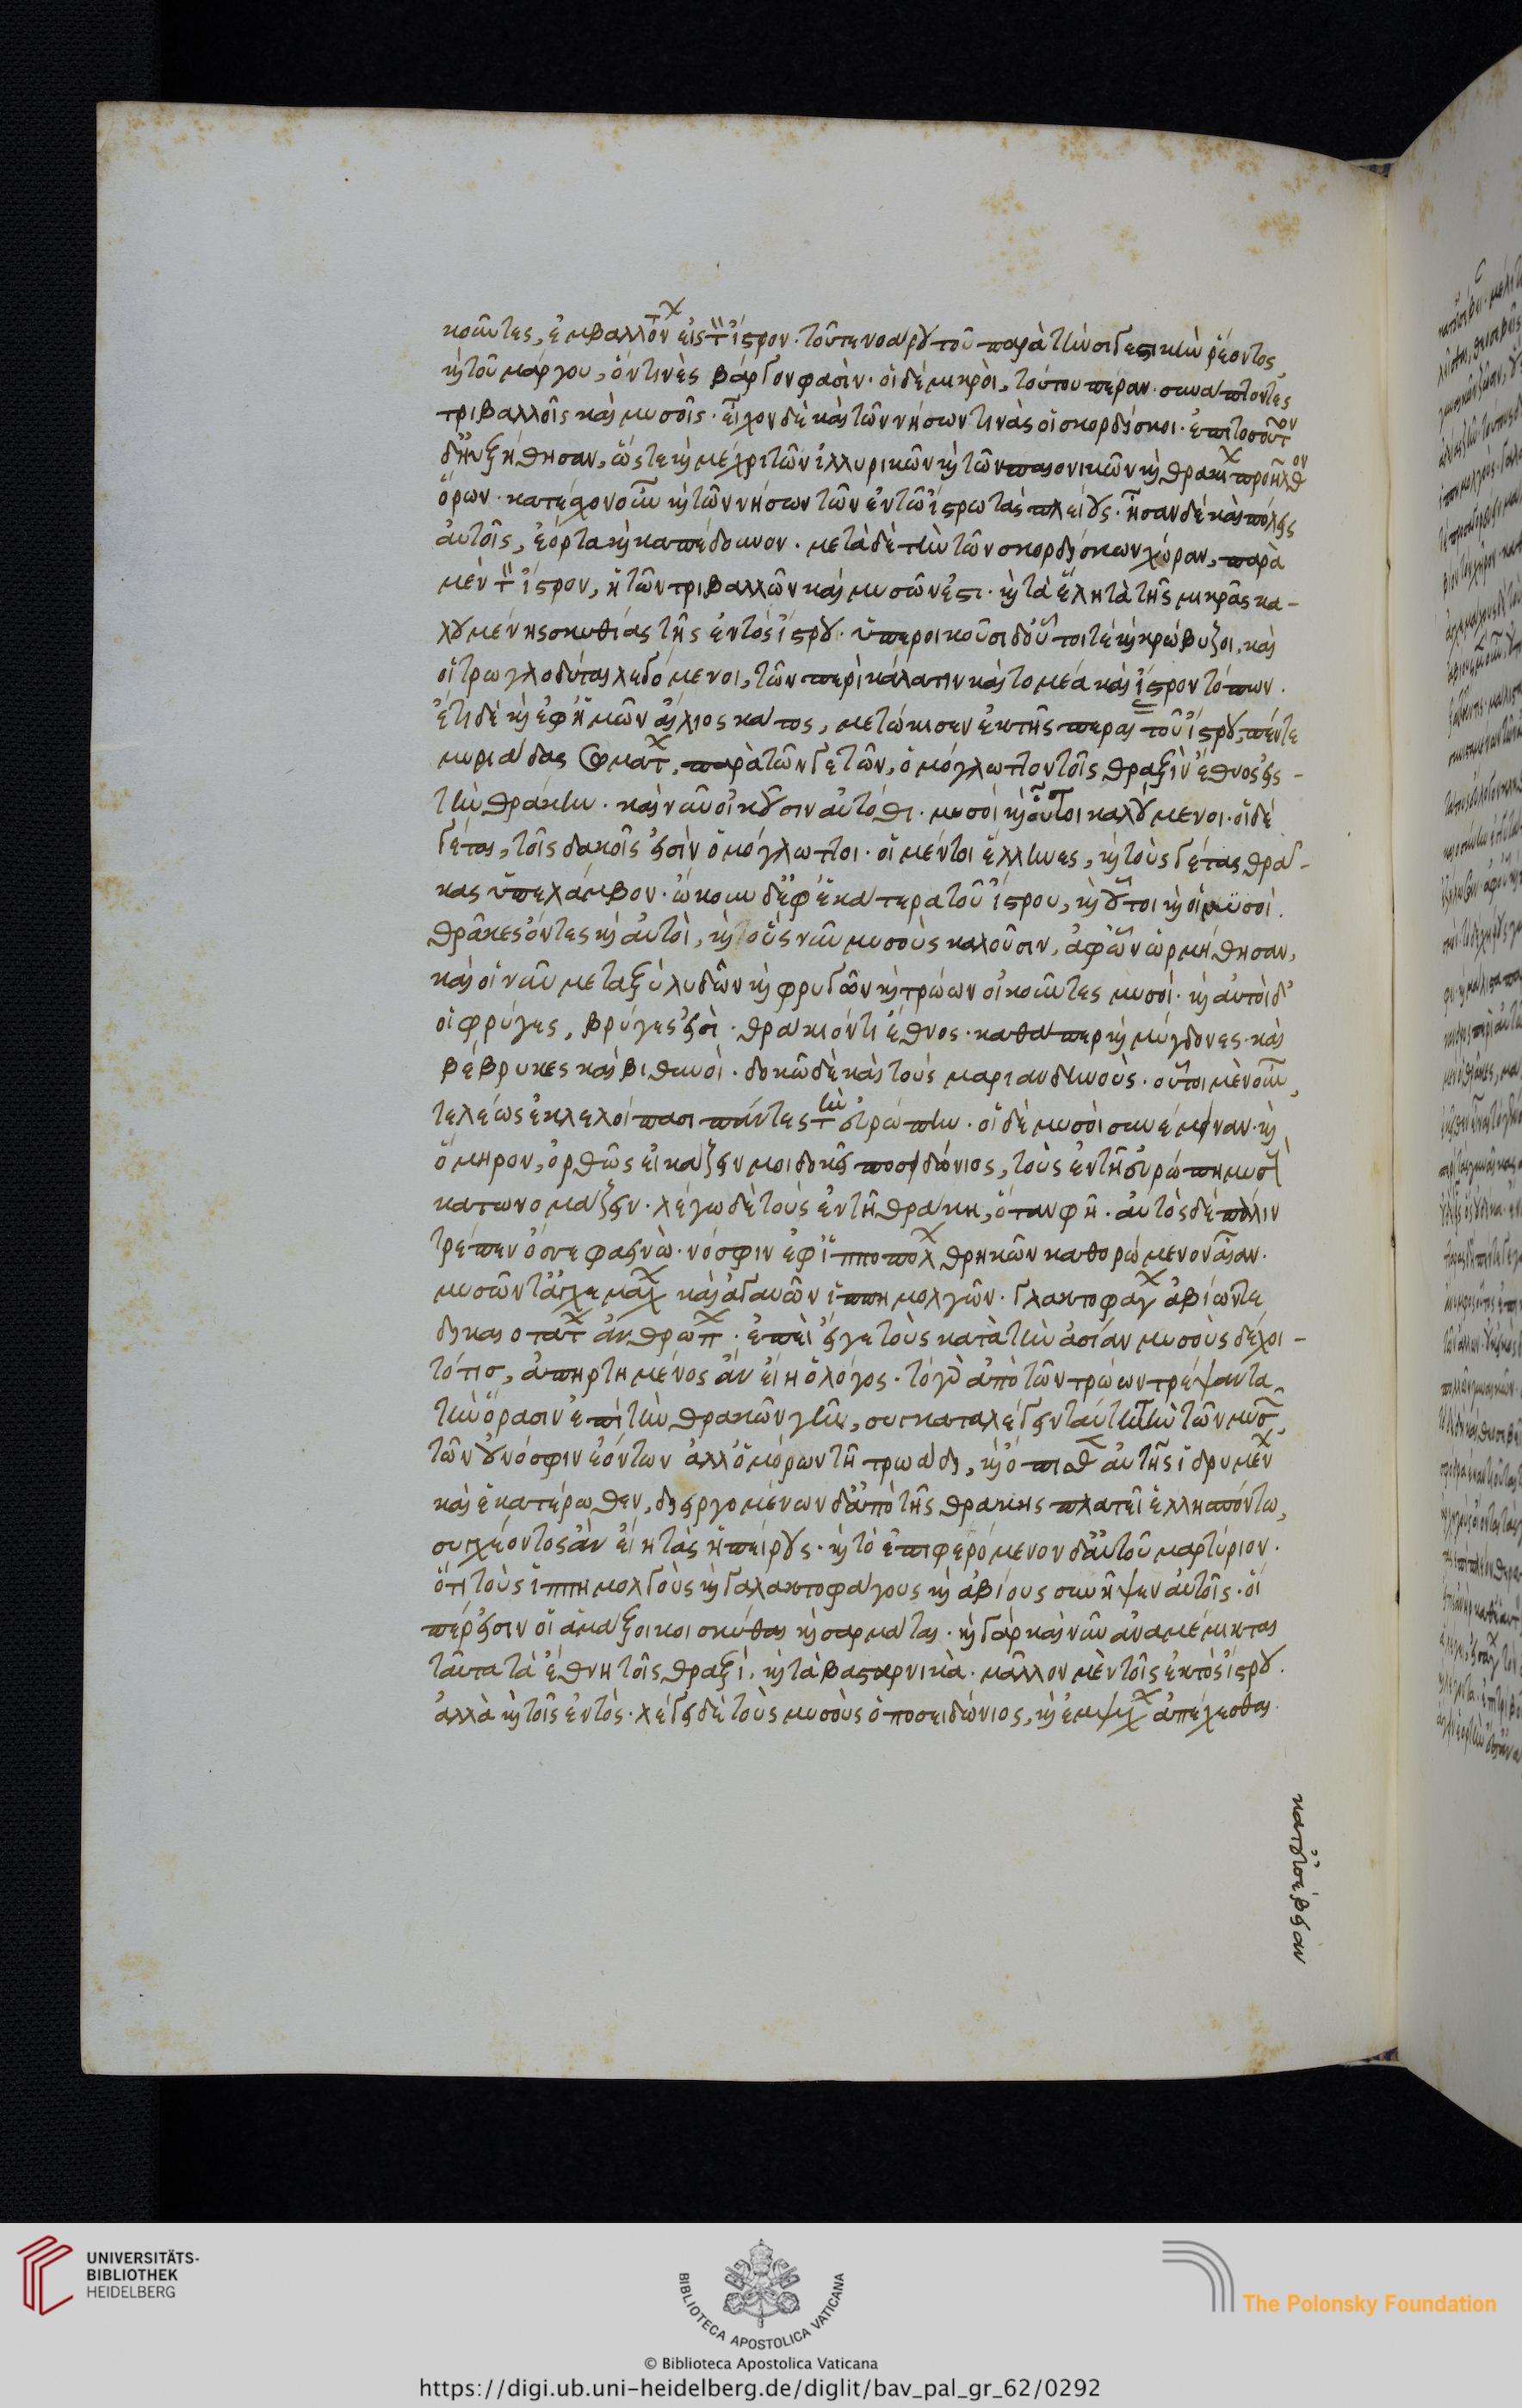 κοῦντες, ἐμβαλλόντων εἰς τὸν ἴστρον. τοῦ τε νοάρου τοῦ παρὰ τὴν σιγεστικὴν ῥέοντος,
καὶ τοῦ μάργου, ὅν τινὲς βάργον φασὶν. οἱ δὲ μικρὸι, τούτου πέραν. συνάπτοντες
τριβαλλοῖς καὶ μυσοῖς. εἶχον δὲ καὶ τῶν νήσων τινὰς οἱ σκορδίσκοι. ἐπὶ τοσοῦτον
δ' ηὐξήθησαν, ὥστε καὶ μέχρι τῶν ἰλλυρικῶν καὶ τῶν παιονικῶν καὶ θρακίων προῆλθον
ὅρων. κατέσχον οὖν καὶ τῶν νήσων τῶν ἐν τῶ ἴστρω τὰς πλείους. ἦσαν δὲ καὶ πόλεις
αὐτοῖς, ἑόρτα καὶ καπέδουνον. μετὰ δὲ τὴν τῶν σκορδίσκων χώραν, παρὰ
μὲν τὸν ἴστρον, ἡ τῶν τριβαλλῶν καὶ μυσῶν ἐστι. καὶ τὰ ἕλη τὰ τῆς μικρᾶς κα-
λουμένης σκυθίας τῆς ἐντὸς ἴστρου. ὑπεροικοῦσι δ' οὗτοί τε καὶ κρώβυζοι, καὶ
οἱ τρωγλοδύται λεγόμενοι, τῶν περὶ κάλατιν καὶ τομέα καὶ ἴστρον τόπων.
ἔτι δὲ καὶ ἐφ' ἡμῶν αἴλιος κάτος, μετώκισεν ἐκ τῆς περαίας τοῦ ἴστρου, πέντε
μυριάδας σωμάτων, παρὰ τῶν γετῶν, ὁμόγλωττον τοῖς θραξὶν ἔθνος εἰς
τὴν θράκην. καὶ νῦν οἰκοῦσιν αὐτόθι. μυσοὶ καὶ οὗτοι καλούμενοι. οἱ δὲ
γέται, τοῖς δακοῖς εἰσὶν ὁμόγλωττοι. οἱ μέντοι ἕλληνες, καὶ τοὺς γέτας θρά-
κας ὑπελάμβανον. ᾤκουν δ' ἐφ' ἑκάτερα τοῦ ἴστρου, καὶ οὗτοι καὶ οἱ μυσοὶ.
θρᾶκες ὄντες καὶ αὐτοὶ, καὶ οὓς νῦν μυσοὺς καλοῦσιν, ἀφ' ὧν ὡρμήθησαν,
καὶ οἱ νῦν μεταξὺ λυδῶν καὶ φρυγῶν καὶ τρώων οἰκοῦντες μυσοὶ. καὶ αὐτοὶ δ'
οἱ φρύγες, βρύγες εἰσὶ. θράκιόν τι ἔθνος. καθάπερ καὶ μύγδονες. καὶ
βέβρυκες καὶ βιθυνοὶ. δοκῶ δὲ καὶ τοὺς μαριανδυνοὺς. οὗτοι μὲν οὖν,
τελέως ἐκλελοίπασι πάντες τὴν εὐρώπην. οἱ δὲ μυσοὶ συνέμειναν. καὶ
ὅμηρον, ὀρθῶς εἰκάζειν μοι δοκεῖ ποσειδώνιος, τοὺς ἐν τῆ εὐρώπη μυσοὺς
κατωνομάζειν. λέγω δὲ τοὺς ἐν τῆ θράκη, ὅταν φῆ. αὐτὸς δὲ πάλιν
τρέπεν ὄσσε φαεινὼ. νόσφιν ἐφ' ἱπποπόλων θρηκῶν καθορώμενον αἶαν.
μυσῶν τ' ἀγχεμάχων καὶ ἀγαυῶν ἱππημολγῶν. γλακτοφάγων ἀβίων τε
δικαιοτάτων ἀνθρώπων. ἐπεὶ εἴ γε τοὺς κατὰ τὴν ἀσίαν μυσοὺς δέχοι-
τό τις, ἀπηρτημένος ἂν εἴη ὁ λόγος. τὸ γὰρ ἀπὸ τῶν τρώων τρέψαντα
τὴν ὅρασιν ἐπὶ τὴν θρακῶν γῆν, συγκαταλέγειν ταύτῃ τὴν τῶν μυσῶν,
τῶν οὐ νόσφιν ἐόντων ἀλλ' ὁμόρων τῆ τρωάδι, καὶ ὄπισθεν αὐτῆς ἱδρυμένων
καὶ ἑκατέρωθεν, διειργομένων δ' ἀπὸ τῆς θράκης πλατεῖ ἑλλησπόντω,
συγχέοντος ἂν εἴη τὰς ἠπείρους. καὶ τὸ ἐπιφερόμενον δ' αὐτοῦ μαρτύριον.
ὅτι τοὺς ἱππημολγοὺς καὶ γαλακτοφάγους καὶ ἀβίους συνῆψεν αὐτοῖς. οἵ
πέρ εἰσιν οἱ ἁμάξοικοι σκύθαι καὶ σαρμάται. καὶ γὰρ καὶ νῦν ἀναμέμικται
ταῦτα τὰ ἔθνη τοῖς θραξὶ. καὶ τὰ βασταρνικὰ. μᾶλλον μὲν τοῖς ἐκτὸς ἴστρου.
ἀλλὰ καὶ τοῖς ἐντὸς. λέγει δὲ τοὺς μυσοὺς ὁ ποσειδώνιος, καὶ ἐμψύχων ἀπέχεσθαι
κατ' εὐσέβειαν
UNIVERSITÄTS-
BIBLIOTHEK
HEIDELBERG
BIBLIOTECA APOSTOLICA VATICANA
The Polonsky Foundation
© Biblioteca Apostolica Vaticana
https://digi.ub.uni-heidelberg.de/diglit/bav_pal_gr_62/0292